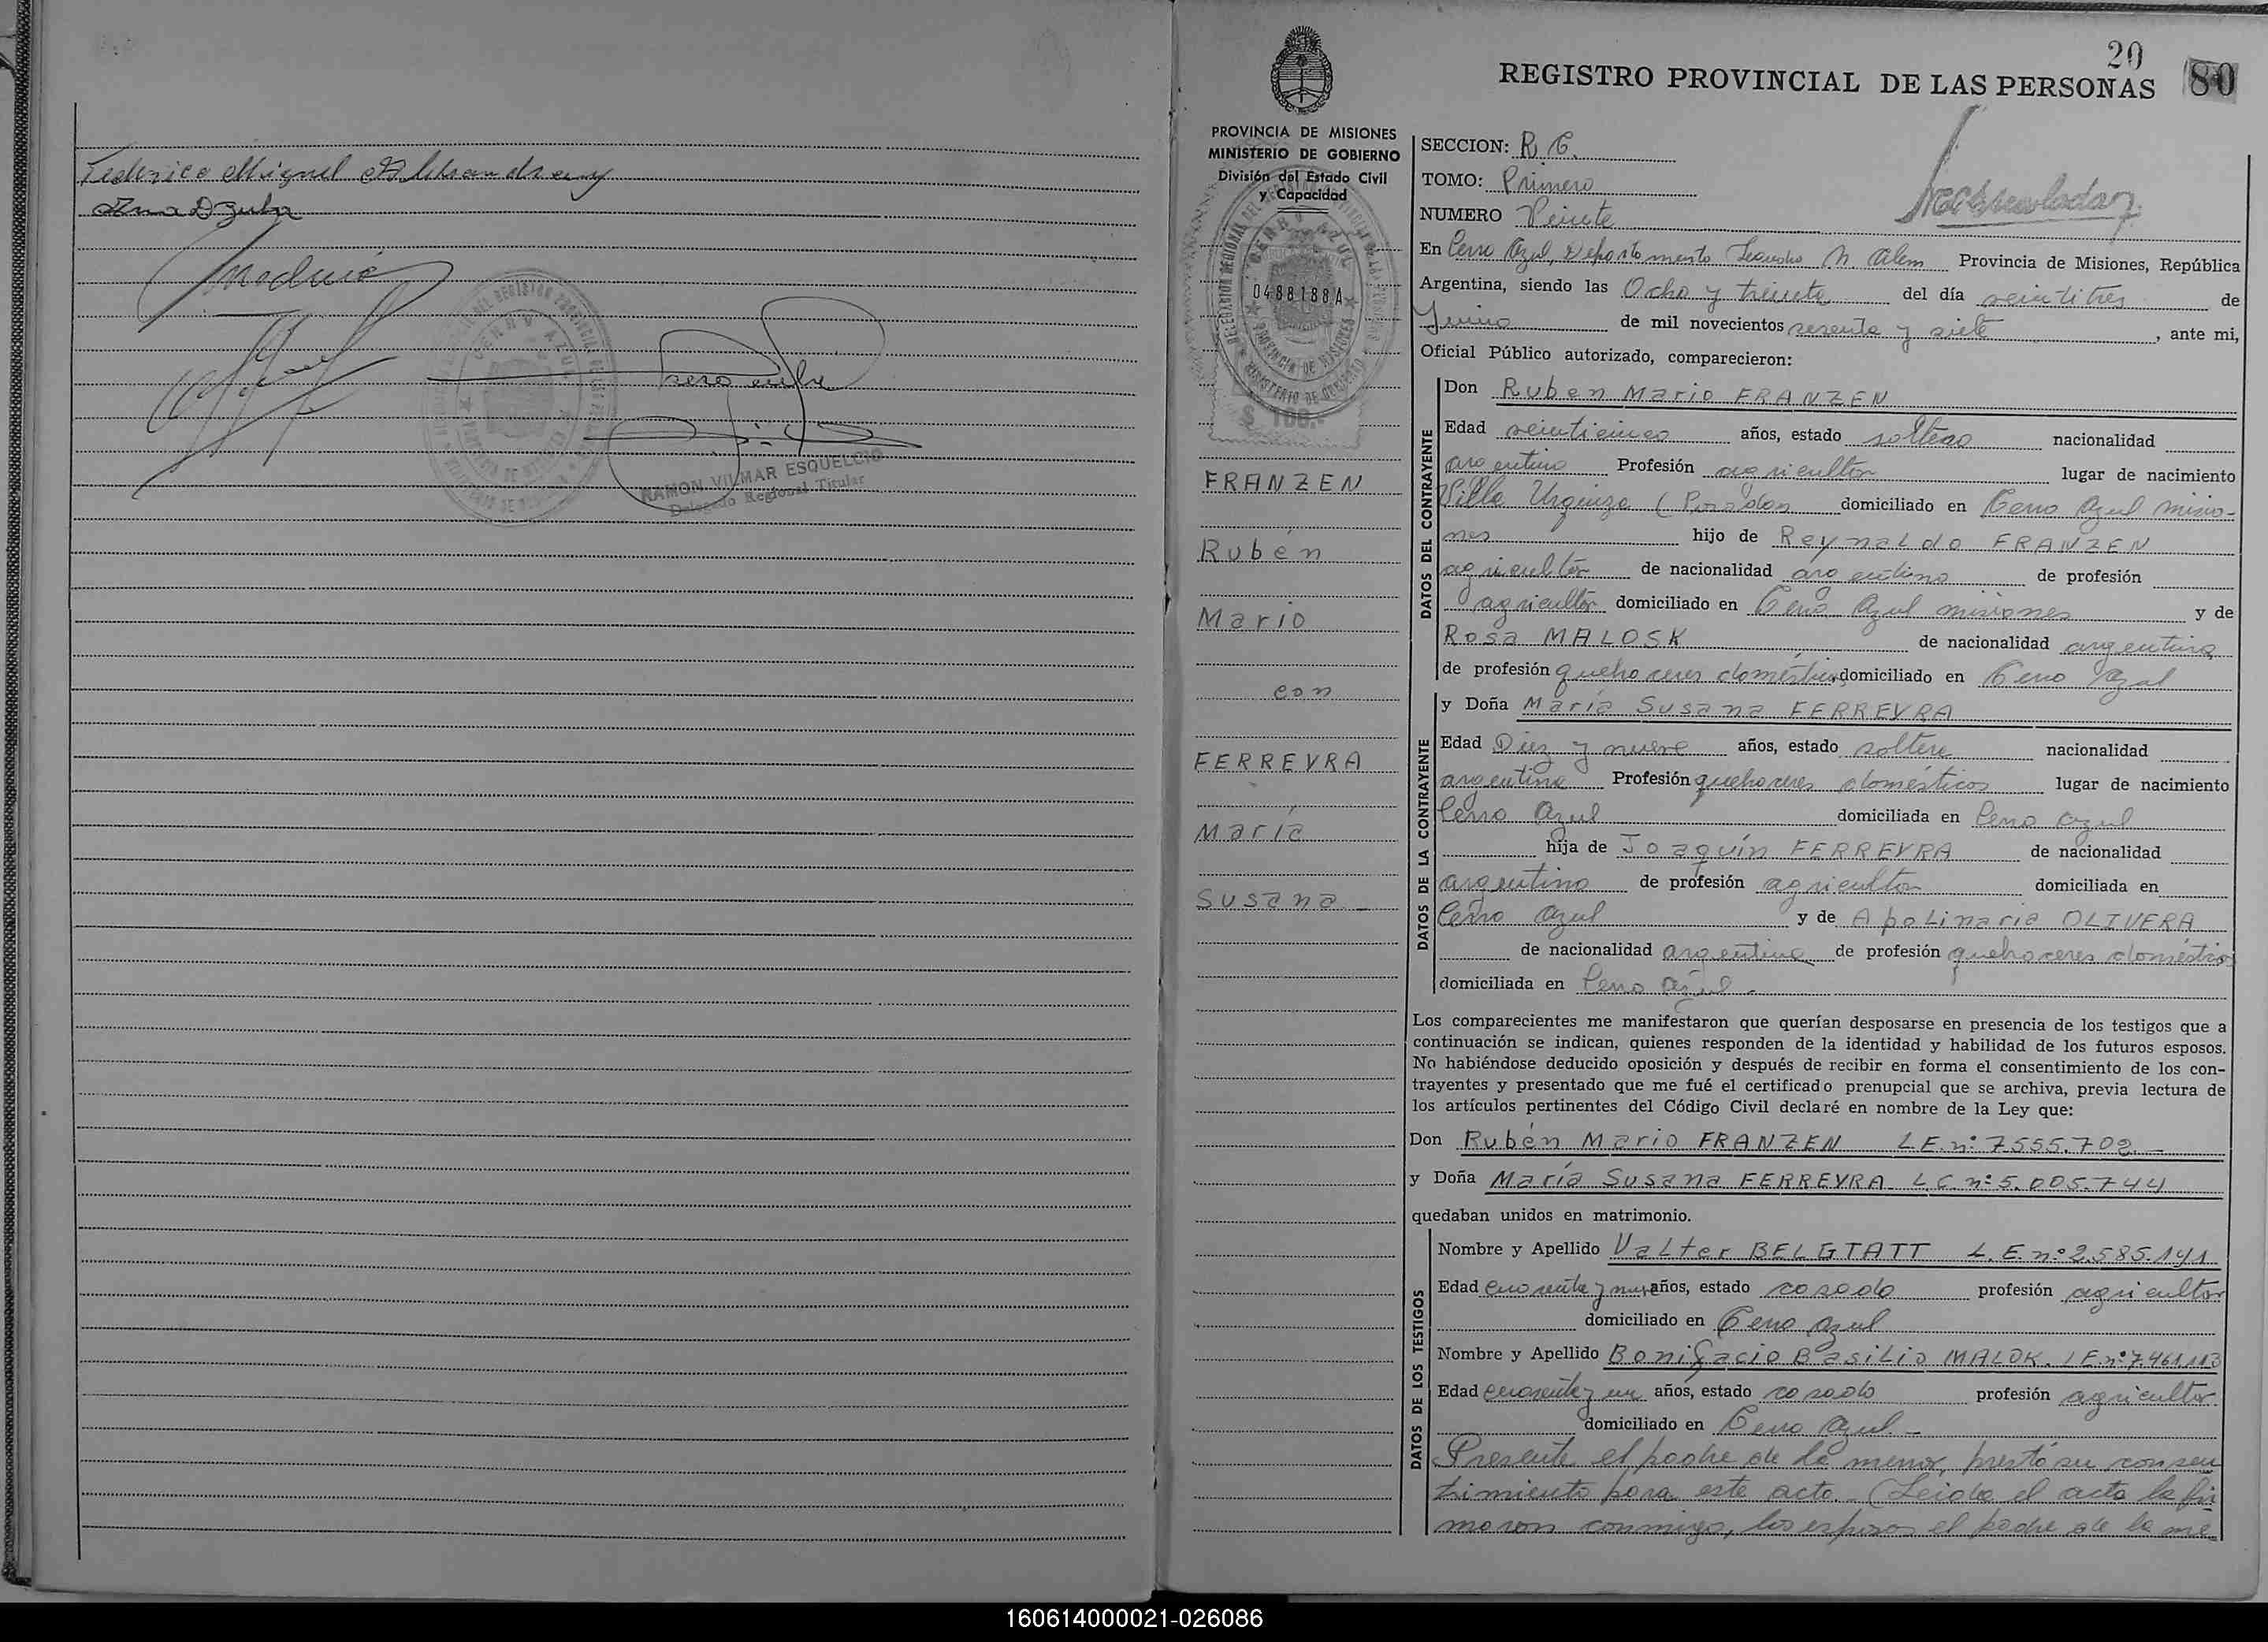 Federico Miguel
Ana D Zuba
RAMON VILMAR ESQUELCIO
Delegado Regional Titular
20
80
REGISTRO PROVINCIAL DE LAS PERSONAS
PROVINCIA DE MISIONES
MINISTERIO DE GOBIERNO
División del Estado Civil
y Capacidad
CERRO AZUL
0488188A
PROVINCIA DE MISIONES
MINISTERIO DE GOBIERNO
FRANZEN
Rubén
Mario
con
FERREYRA
María
Susana
SECCION: R. C.
TOMO: Primero
NUMERO Veinte
En Cerro Azul, Departamento Leandro N. Alem Provincia de Misiones, República
Argentina, siendo las Ocho y treinta del día veintitres de
Junio de mil novecientos sesenta y siete, ante mi,
Oficial Público autorizado, comparecieron:
DATOS DEL CONTRAYENTE
Don Ruben Mario FRANZEN
Edad veinticinco años, estado soltero nacionalidad
argentino Profesión agricultor lugar de nacimiento
Villa Urquiza domiciliado en Cerro Azul Misio-
nes hijo de Reynaldo FRANZEN
agricultor de nacionalidad argentino de profesión
agricultor domiciliado en Cerro Azul misiones y de
Rosa MALOSK de nacionalidad argentina
de profesión quehaceres domésticos domiciliado en Cerro Azul
DATOS DE LA CONTRAYENTE
y Doña María Susana FERREYRA
Edad Diez y nueve años, estado soltera nacionalidad
argentina Profesión quehaceres domésticos lugar de nacimiento
Cerro Azul domiciliada en Cerro Azul
hija de Joaquín FERREYRA de nacionalidad
argentino de profesión agricultor domiciliada en
Cerro Azul y de Apolinaria OLIVERA
de nacionalidad argentina de profesión quehaceres domésticos
domiciliada en Cerro Azul -
Los comparecientes me manifestaron que querían desposarse en presencia de los testigos que a
continuación se indican, quienes responden de la identidad y habilidad de los futuros esposos.
No habiéndose deducido oposición y después de recibir en forma el consentimiento de los con-
trayentes y presentado que me fué el certificado prenupcial que se archiva, previa lectura de
los artículos pertinentes del Código Civil declaré en nombre de la Ley que:
Don Rubén Mario FRANZEN L.E. nº 7555.702
y Doña María Susana FERREYRA L.C. nº 5.005.744
quedaban unidos en matrimonio.
DATOS DE LOS TESTIGOS
Nombre y Apellido Valter BELGTATT L.E. nº 2.585.191
Edad cuarenta y nueve años, estado casado profesión agricultor
domiciliado en Cerro Azul
Nombre y Apellido Bonifacio Basilio MALOK. LE. nº 7.461.113
Edad cuarenta y un años, estado casado profesión agricultor
domiciliado en Cerro Azul -
Presente el padre de la menor, prestó su consen
timiento para este acto. Leida el acta la fir
maron conmigo, los esposos el padre de la me
160614000021-026086